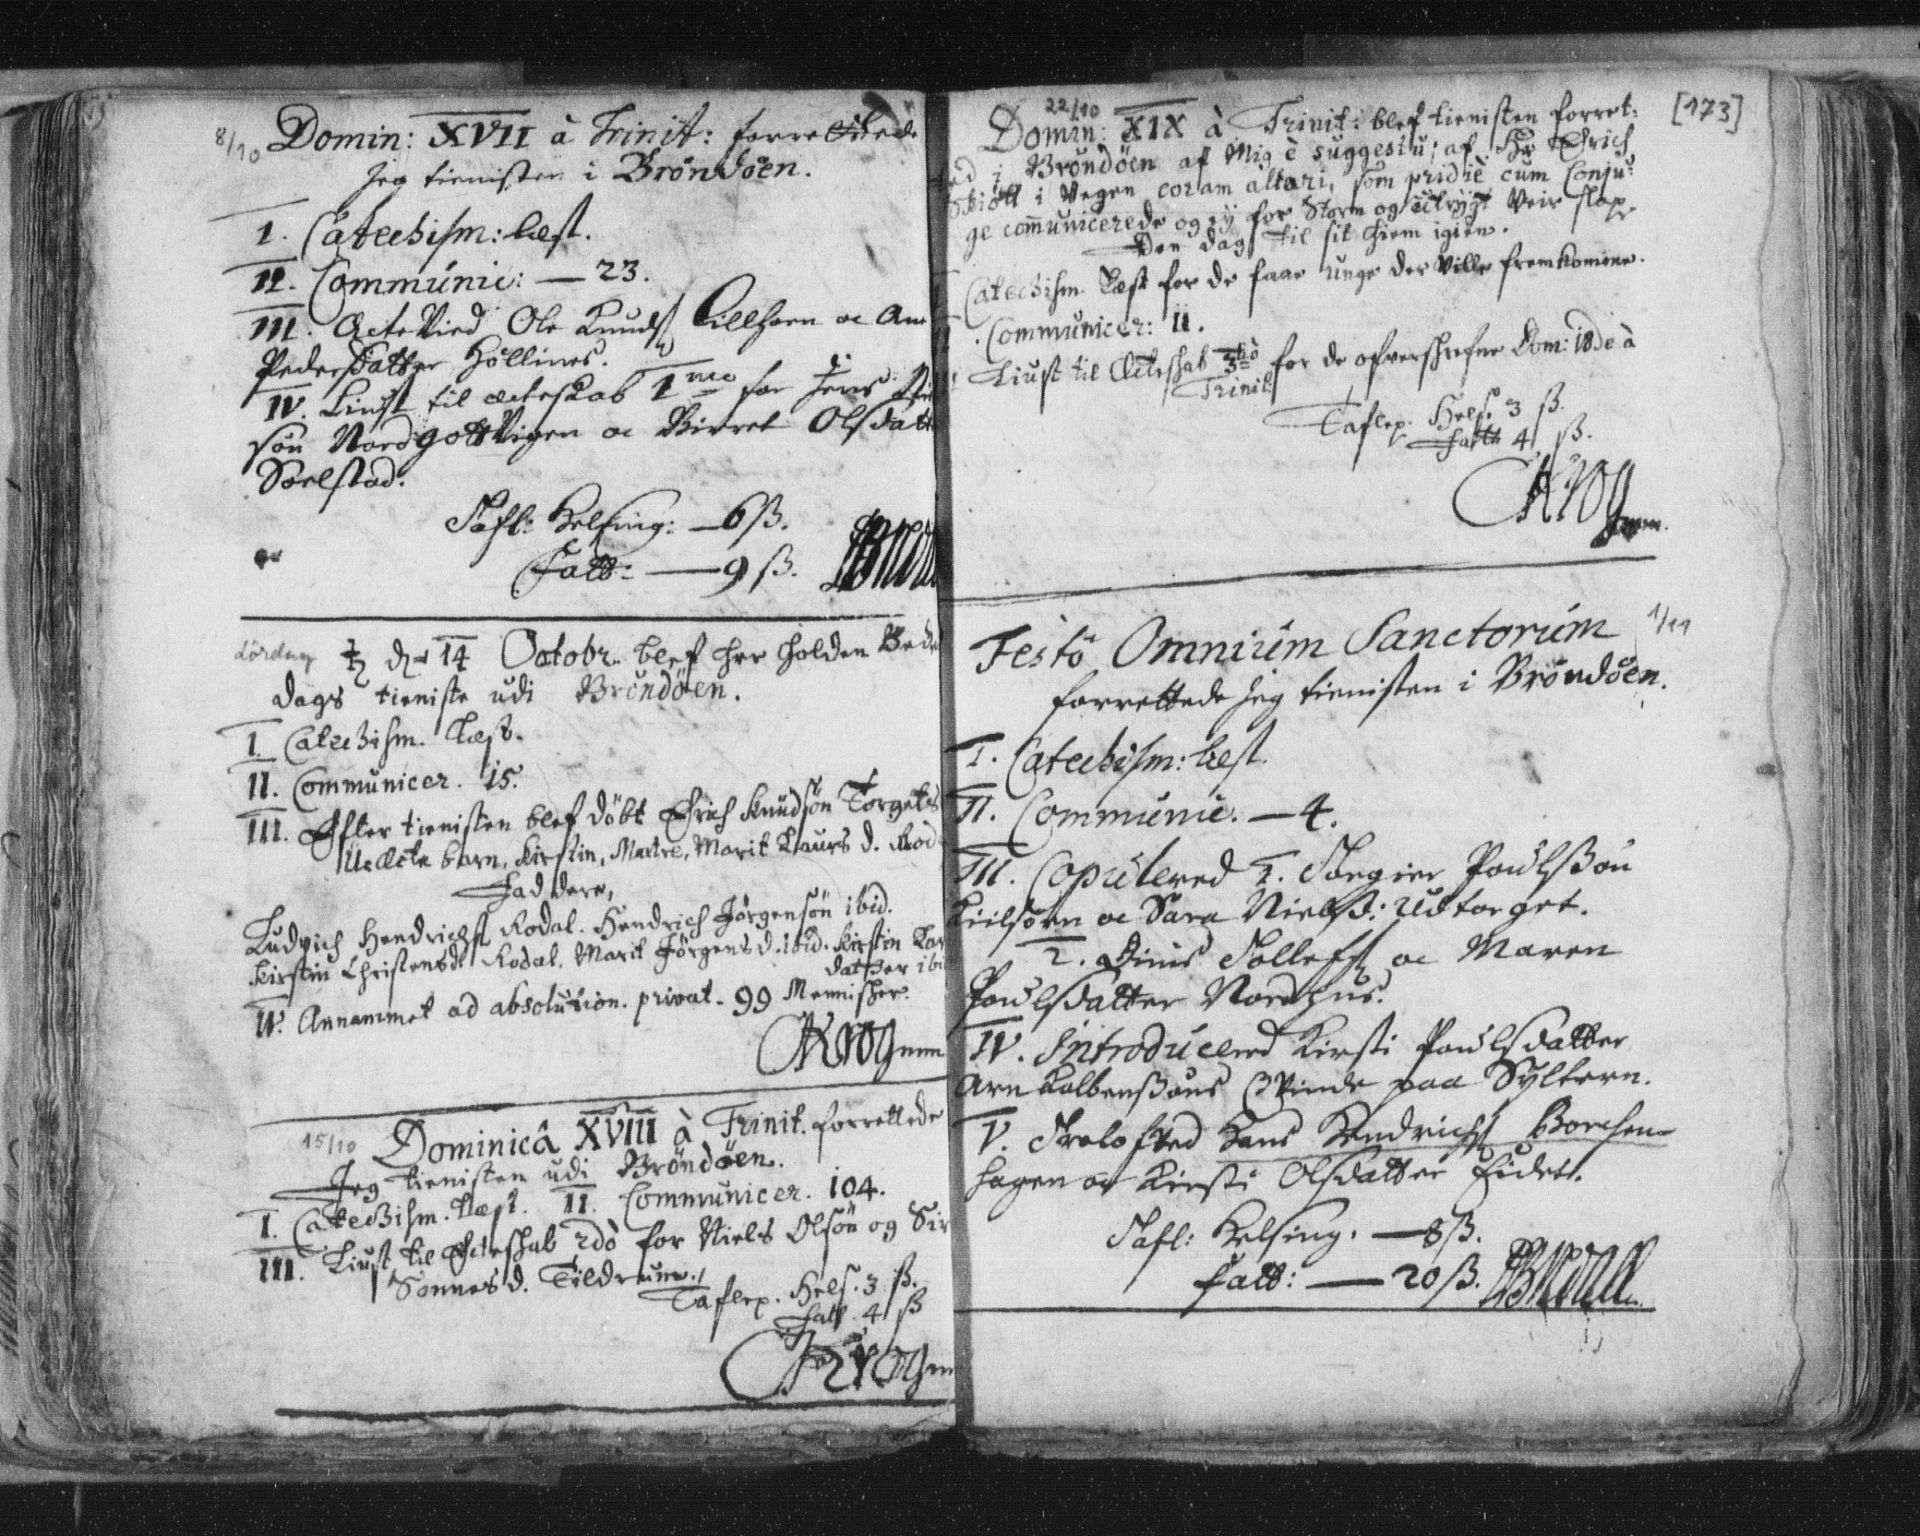 8/10 Domin: XVII à Trinit: forrettede
Jeg tienisten i Bröndöen.
I. Catechism: læst.
II. Communic: — 23.
III. Ægte Vied Ole Knuds Lillhorn oc An
Pedersdatter Höllines.
IV. Liust til ecteskab 1mo for Jens
sön Nordgottvigen oc Birret Olsdatt
Sœlstad.
Tafl: Helsing: — 6 ß.
Fatt: — 9 ß.
lördag ♄ d. 14 Octobr. blef her holden Bede
dags tieniste udi Bröndöen.
I. Catechism. Læst.
II. Communicer. 15.
III. Efter tienisten blef döbt Erich Knudsön Torgets
UeEcte barn, Kirstin, Mactre, Marit Laurs d. Rod
Faddere,
Ludvich Hendrichs Rodal. Hendrich Jörgensön ibid.
Kirstin Christensd. Rodal. Marit Jörgens d. ibid. Kirstin Lar
datter ibi
IV. Annammet ad absolution. privat. 99 Mennisker.
Krog mm
15/10 Dominicâ XVIII à Trinit. forrettede
Jeg tienisten udi Bröndöen.
I. Catechism. Læst. II. Communicer. 104.
III. Liust til Ecteskab 2dò for Niels Olsön og Sir
Sonnes d. Tildrum.
Taflep. Hels. 3 ß.
Fatt. 4 ß
Krog m
22/10 [173]
Domin: XIX à Trinit: blef tienisten forret:
ed i Bröndöen af Mig è suggestu; af Hr Erich
Skiött i Vegen coram altari, som pridiè cum Conju:
ge communicerede og ey for Storm og utrygt Veir slap
Den dag til sit Hiem igien.
Catechism. Læst for de faae Unge der Ville fremkomme.
. Communicer: II.
Liust til Ecteskab 3tiò for de ofverskrefne Dom: 18de à
Trinit:
Taflep. Hels. 3 ß.
Fatt 4 ß.
Krog mm.
Festo Omnium Sanctorum 1/11
forrettede Jeg tienisten i Bröndöen.
I. Catechism: læst.
II. Communic. — 4.
III. Copulered 1. Torgier Poulsßön
Kiilsörn oc Sara Nielsd: Udtorget.
2. Dinis Tollefs oc Maren
Poulsdatter Nordhus.
IV. Introducered Kirsti Poulsdatter
Arn Kolbensßöns Qvinde paa Syltern.
V. Trolofved Hans Hendrichs Borchen-
hagen oc Kirsti Olsdatter Eidet.
Tafl: Helsing. — 8 ß.
Fatt: — 20 ß.